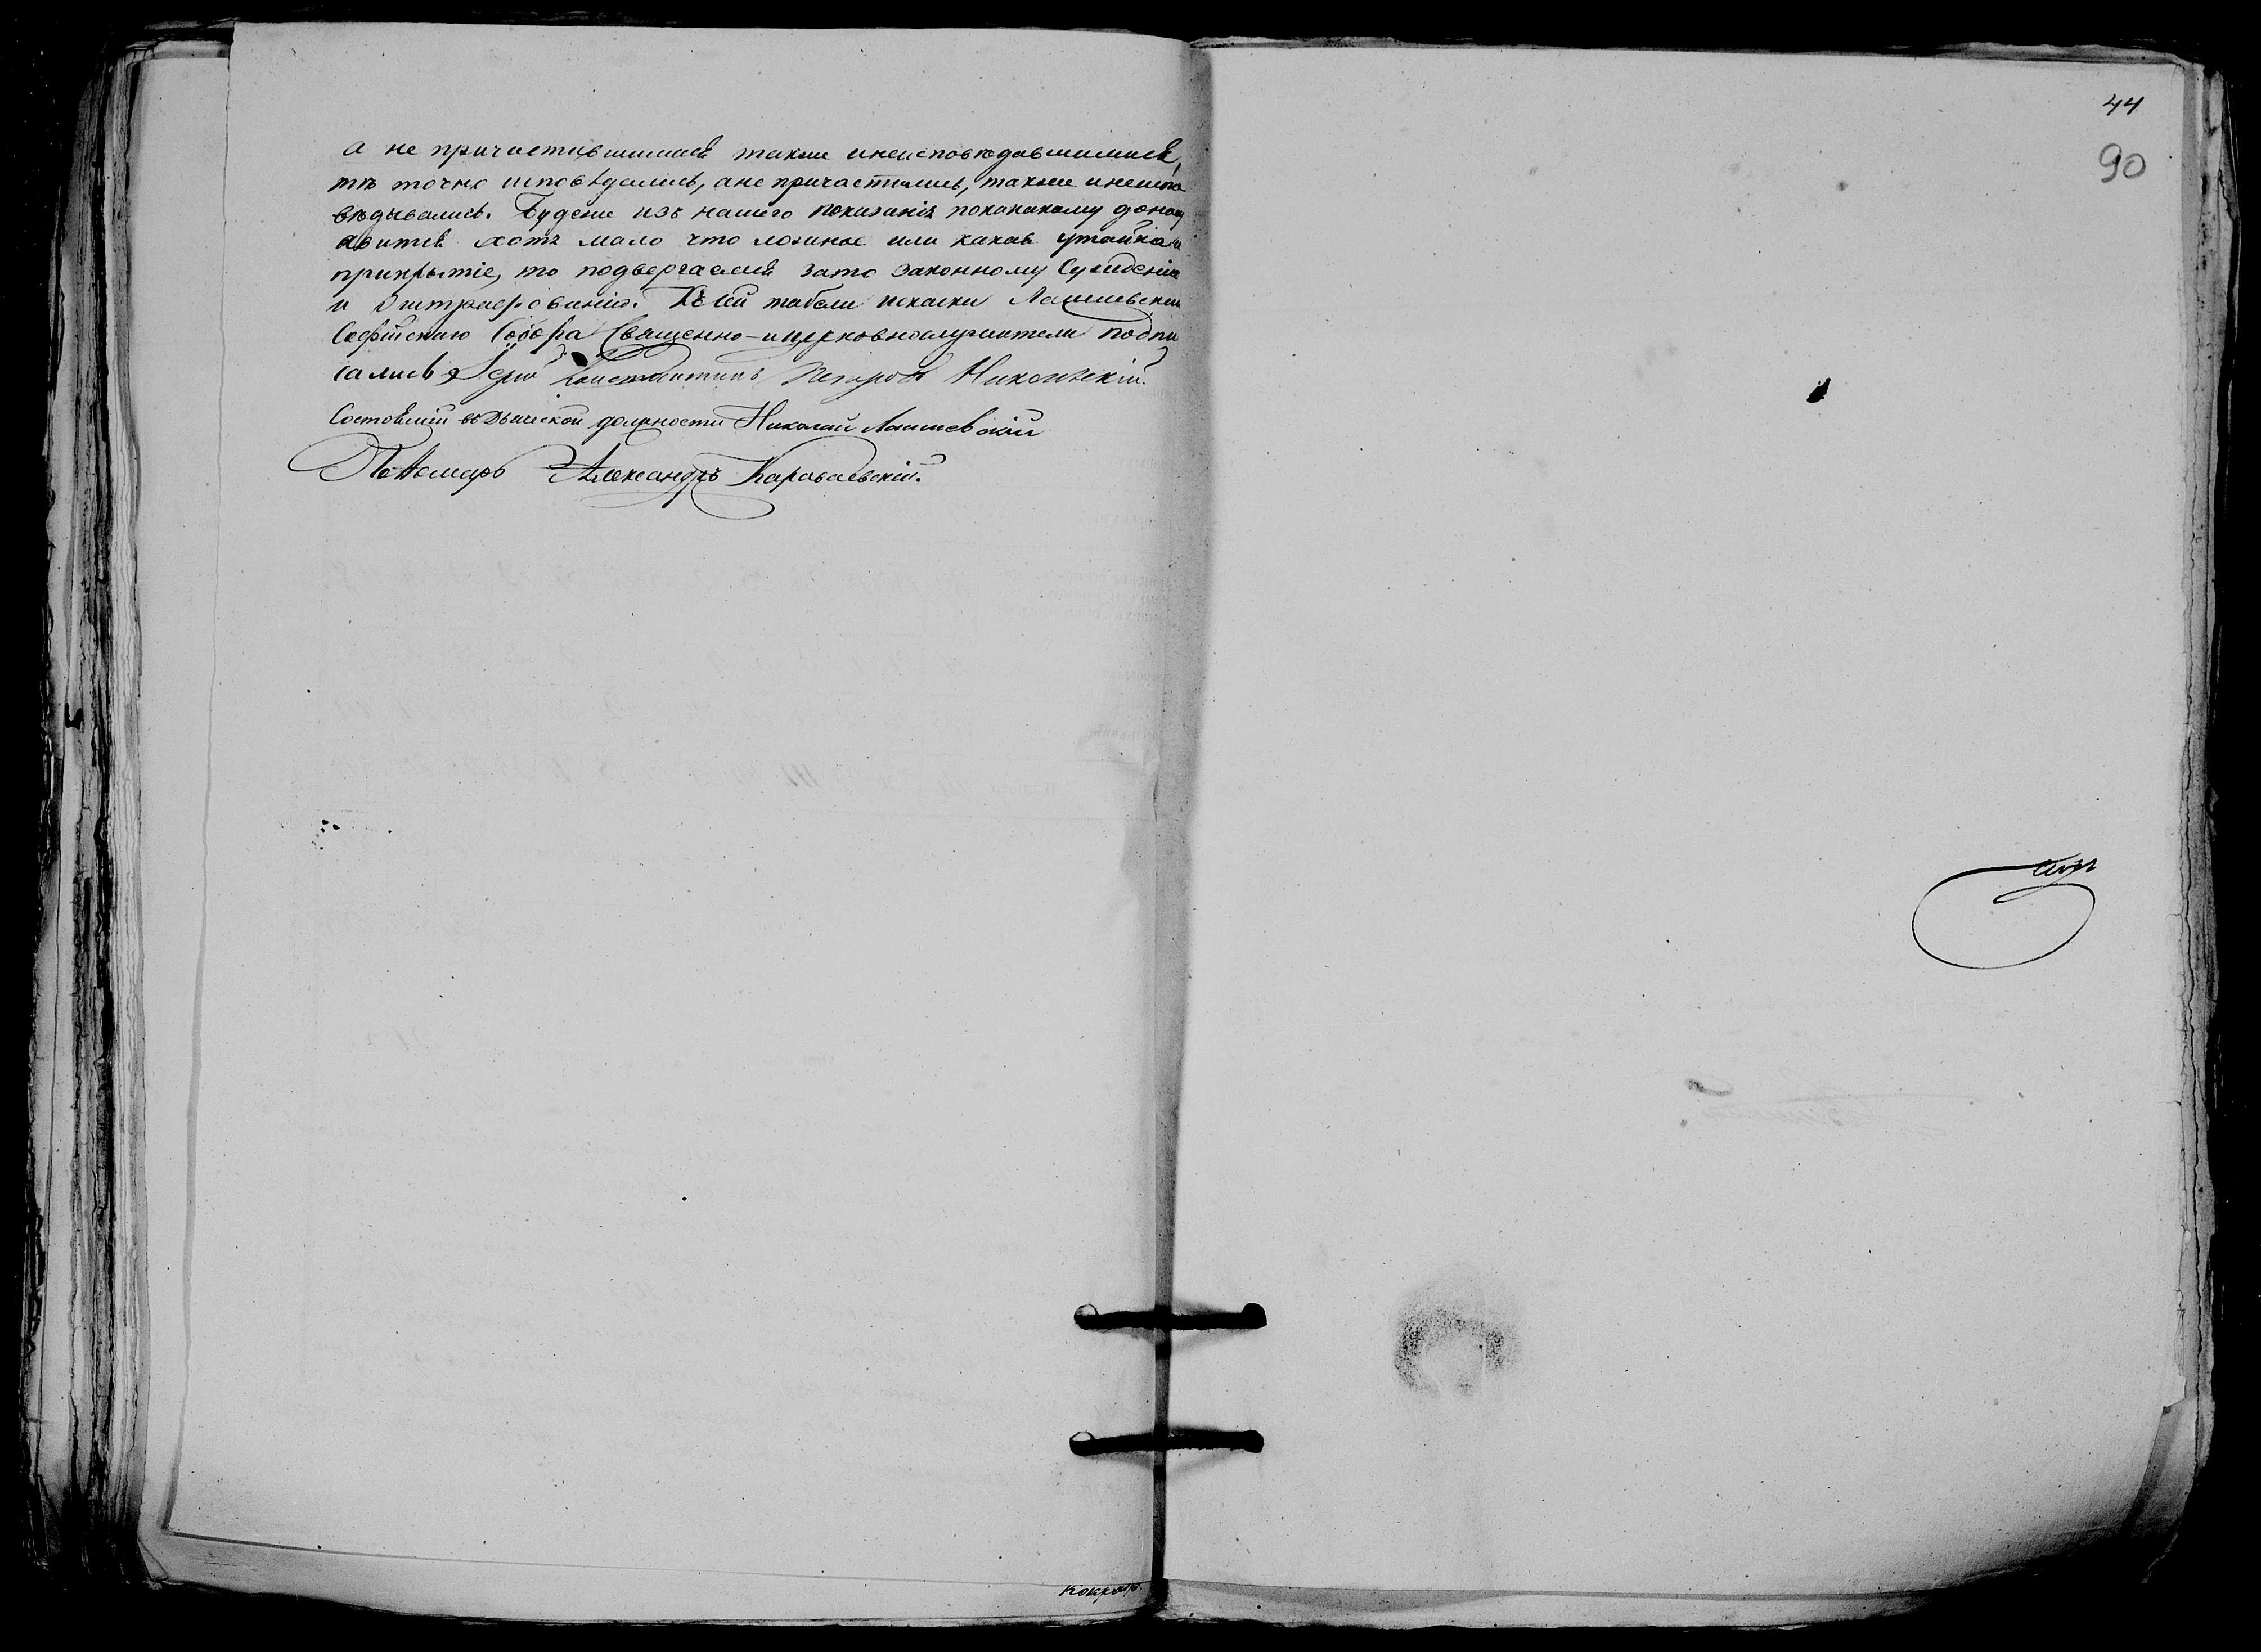 а не причастившимися также и неисповѣдавшимися,
тѣ точно исповѣдались, а не причастились, также и неиспо
вѣдывались. Будеже изъ нашего показанія по какому доносу
явится хотя мало что ложное или какая утайка и
прикрытіе, то подвергаемся за то законному Сужденію
и Штрафованію. Къ сей табели и сказки Лаишевскаго
Софійскаго Собора Священно-и церковнослужители подпи
сались Іерей Константинъ Петровъ Никольскій.
Состоящій въ Дьяческой должности Николай Лаишевскій
Пономарь Александръ Караваевскій.
44
90